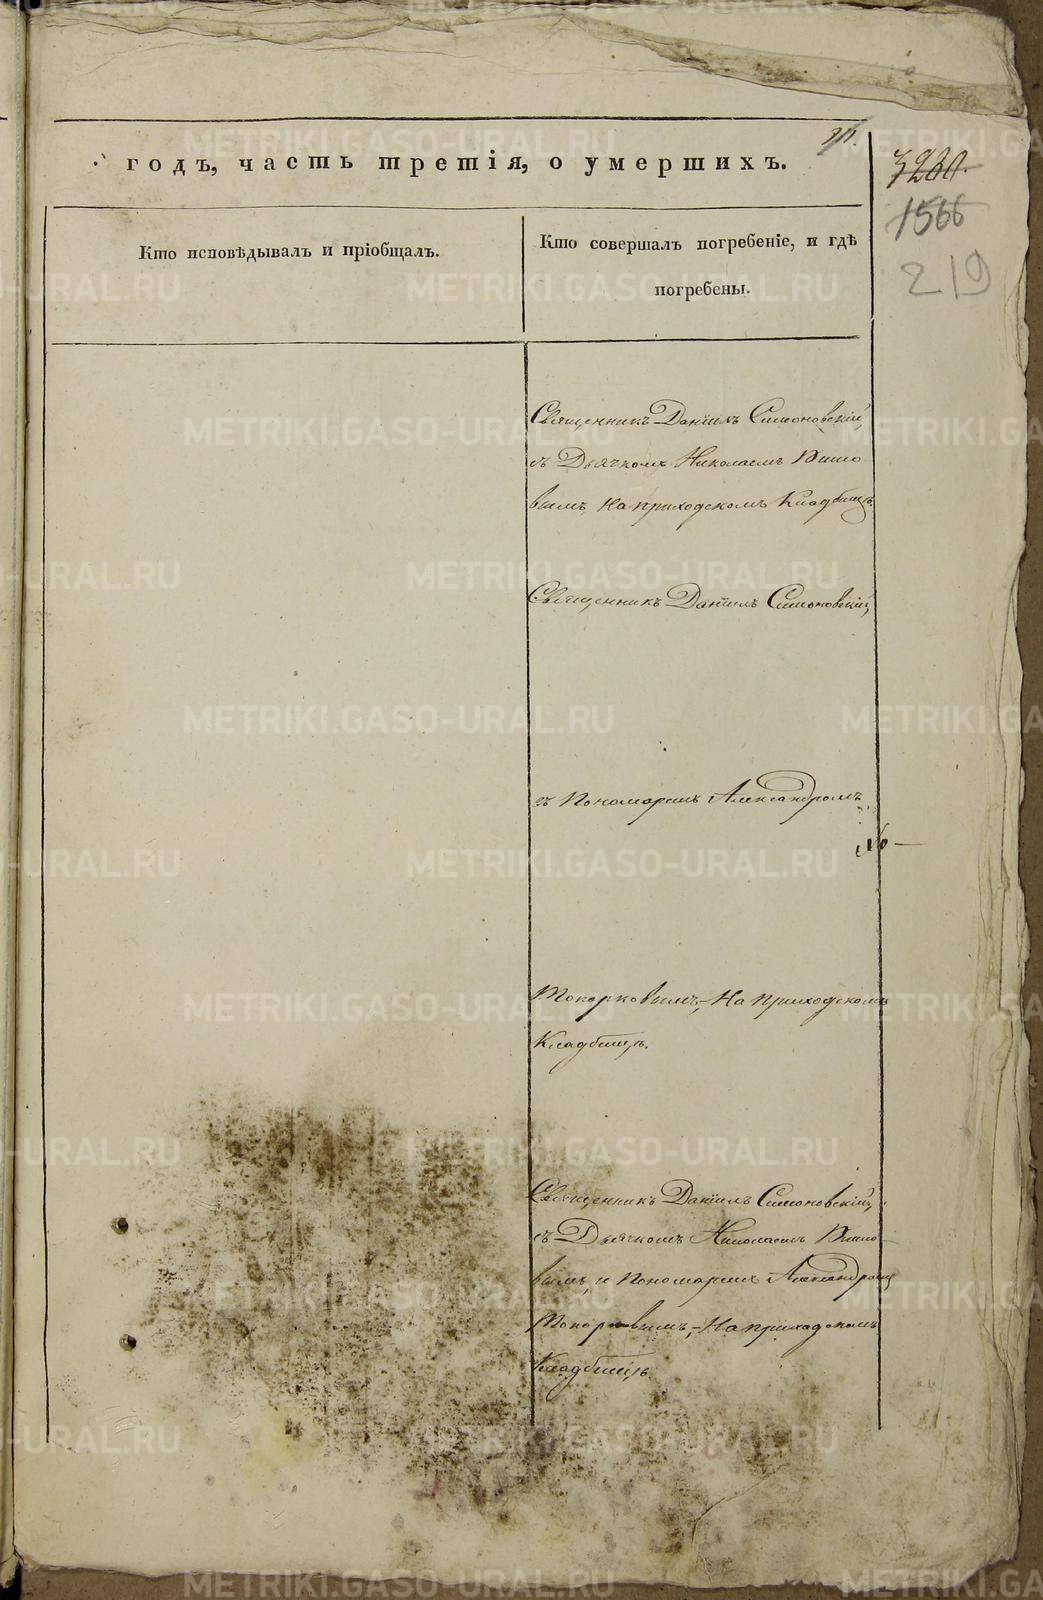 годъ, часть третія, о умершихъ.
3200.
1566
219
Кто исповѣдывалъ и пріобщалъ.
Кто совершалъ погребеніе, и гдѣ
погребены.
Священникъ Даніилъ Симоновскій,
съ Дьячкомъ Николаемъ
вымъ, На приходскомъ Кладбищѣ.
Священникъ Даніилъ Симоновскій,
съ Пономаремъ Александромъ
Топорковымъ, На приходскомъ
Кладбищѣ.
Священникъ Даніилъ Симоновскій,
съ Дьячкомъ Николаемъ
вымъ и Пономаремъ Александромъ
Топорковымъ, На приходскомъ
Кладбищѣ.
METRIKI.GASO-URAL.RU